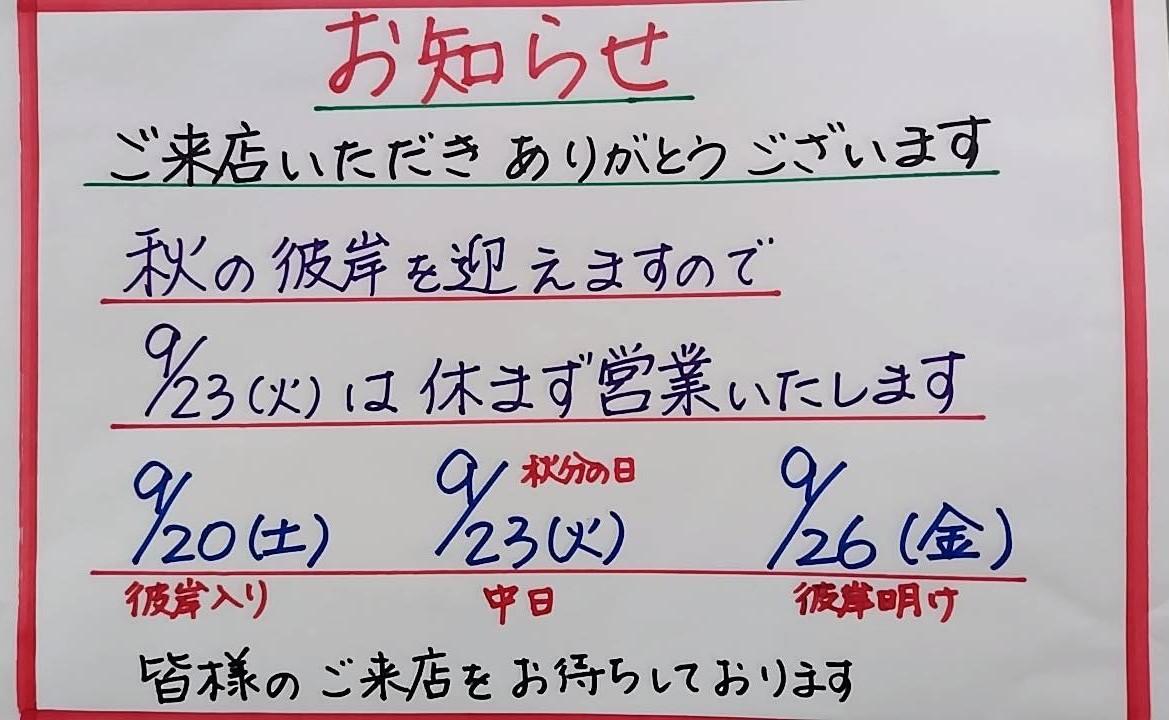 お知らせ
ご来店いただき ありがとうございます
秋の彼岸を迎えますので
9/23(火)は休まず営業いたします
9/20(土) 9/23(火) 秋分の日 9/26(金)
彼岸入り 中日 彼岸明け
皆様のご来店をお待ちしております